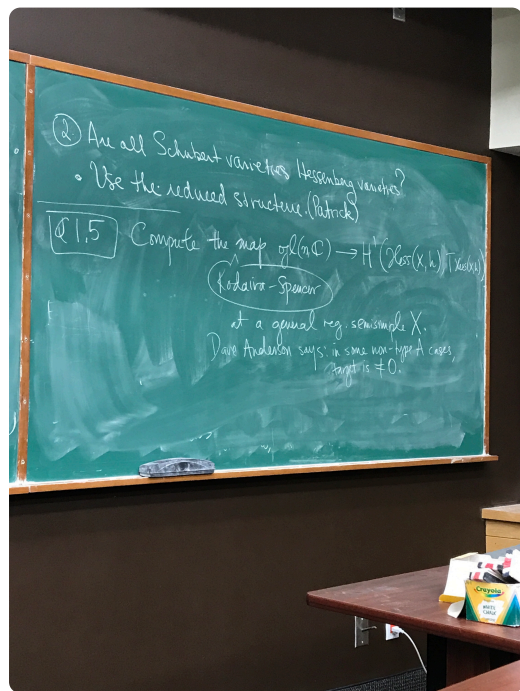 ② Are all Schubert varieties Hessenberg varieties?
• Use the reduced structure. (Patrick)
Q1.5 Compute the map gl(n,ℂ) → H¹(Hess(X,h), T Hess(X,h))
Kodaira-Spencer
at a general reg. semisimple X.
Dave Anderson says: in some non-type A cases,
target is ≠ 0.
Crayola
WHITE
CHALK